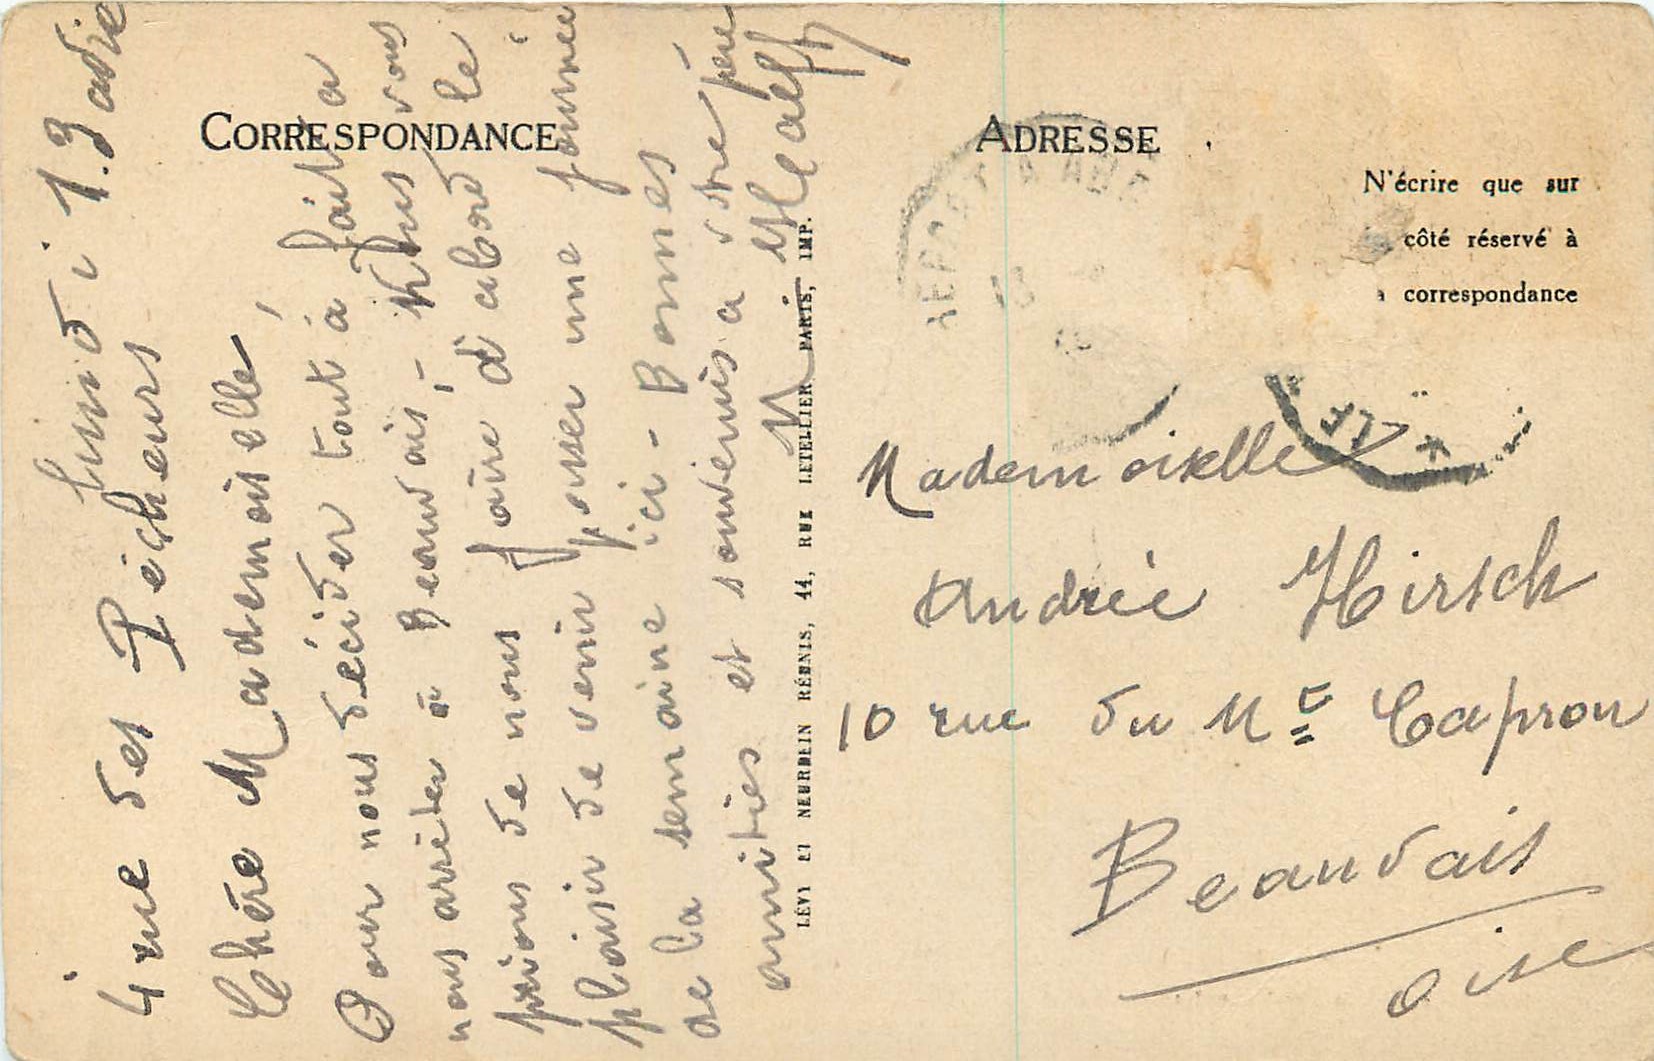 CORRESPONDANCE
lundi
4 rue des Pêcheurs
Chère Mademoiselle,
Pour nous décider tout à fait a
nous arrêter à Beauvais, - Nous vous
prions de nous faire d'abord le
plaisir de venir passer une journée
de la semaine ici - Bonnes
amitiés et souvenirs a votre père
LÉVY ET NEURDEIN RÉUNIS, 44, RUE LETELLIER PARIS, IMP.
ADRESSE
N'écrire que sur
côté réservé à
correspondance
Mademoiselle
Andrée Hirsch
10 rue du Mt Capron
Beauvais
Oise